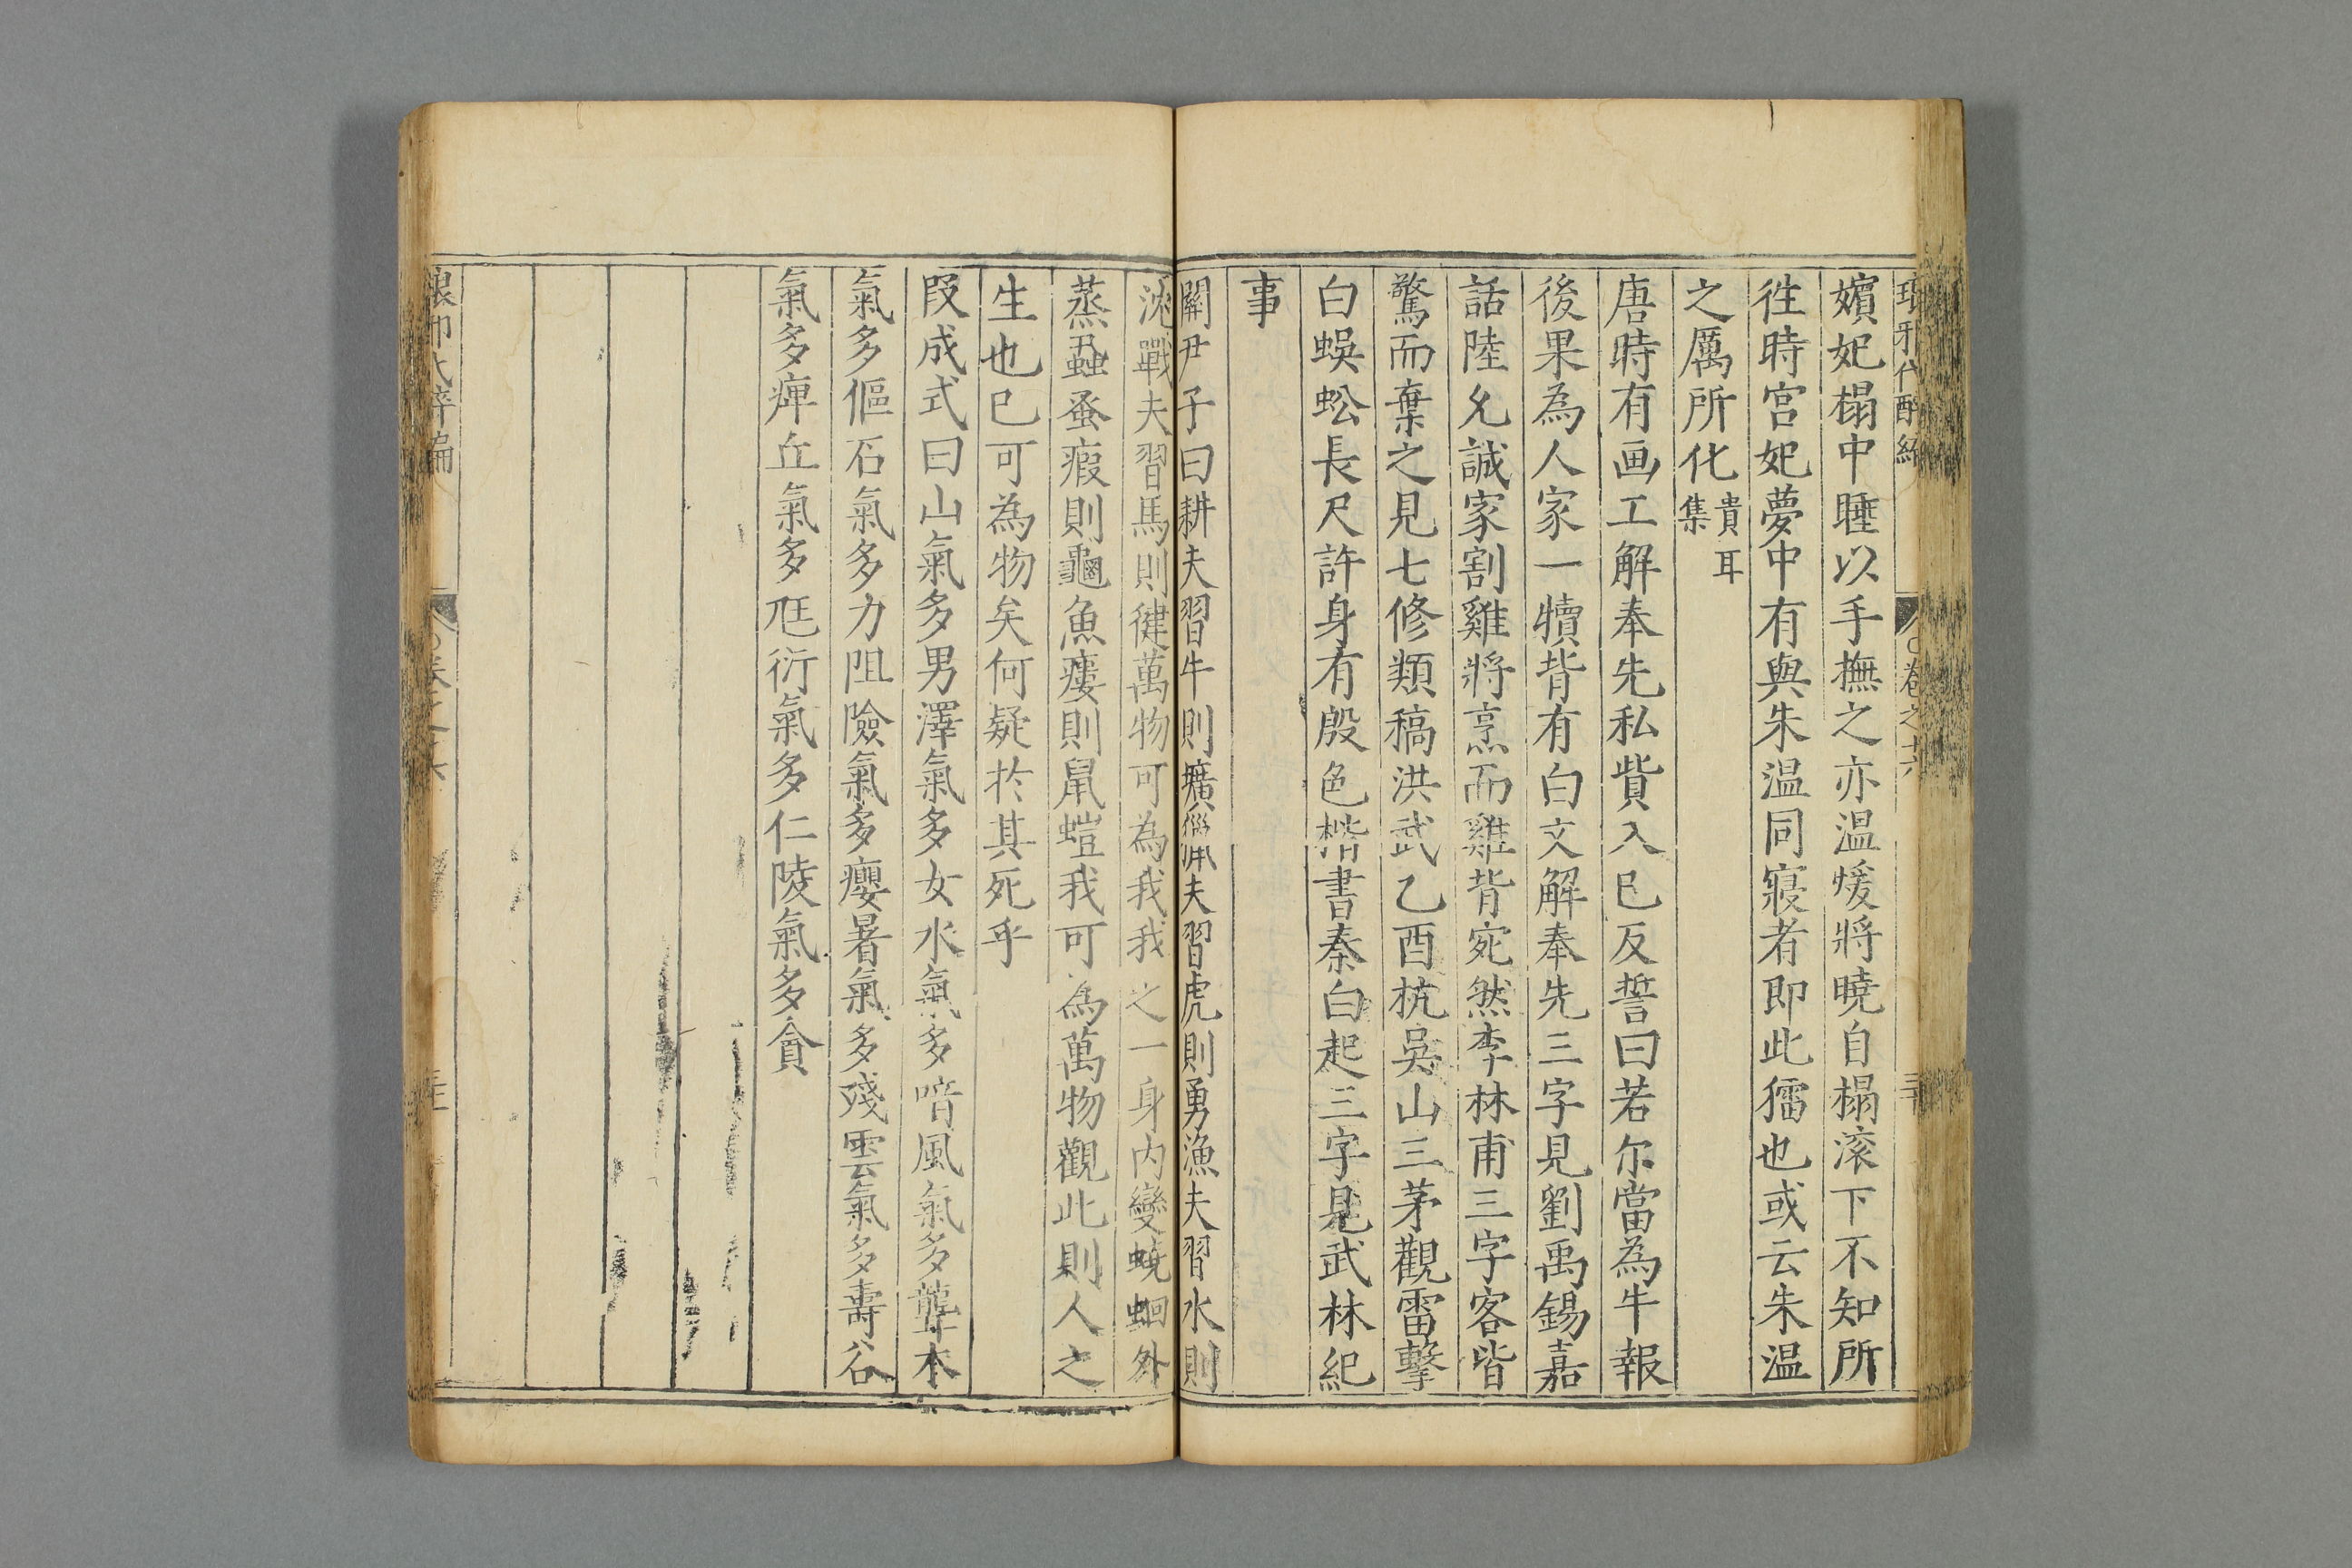 嬪妃榻中睡以手撫之亦温煖將曉自榻滚下不知所
徃時宫妃夢中有與朱温同寢者即此㺠也或云朱温
之厲所化貴耳集
唐時有画工解奉先私貲入已反誓曰若尔當為牛報
後果為人家一犢背有白文解奉先三字見劉禹錫嘉
話陸允誠家割雞將烹而雞背宛然李林甫三字客皆
驚而棄之見七修類稿洪武乙酉杭吳山三茅觀雷擊
白蜈蚣長尺許身有殷色楷書秦白起三字見武林紀
事
關尹子曰耕夫習牛則獷夫習虎則勇漁夫習水則
沈戰夫習馬則健萬物可為我我之一身内變蟯蛔外
蒸蝨蚤瘕則龜魚瘻則鼠螘我可為萬物觀此則人之
生也已可為物矣何疑於其死乎
段成式曰山氣多男澤氣多女水氣多喑風氣多聾木
氣多傴石氣多力阻險氣多癭暑氣多殘雲氣多壽谷
氣多痺丘氣多尫衍氣多仁陵氣多貪
卷之十六